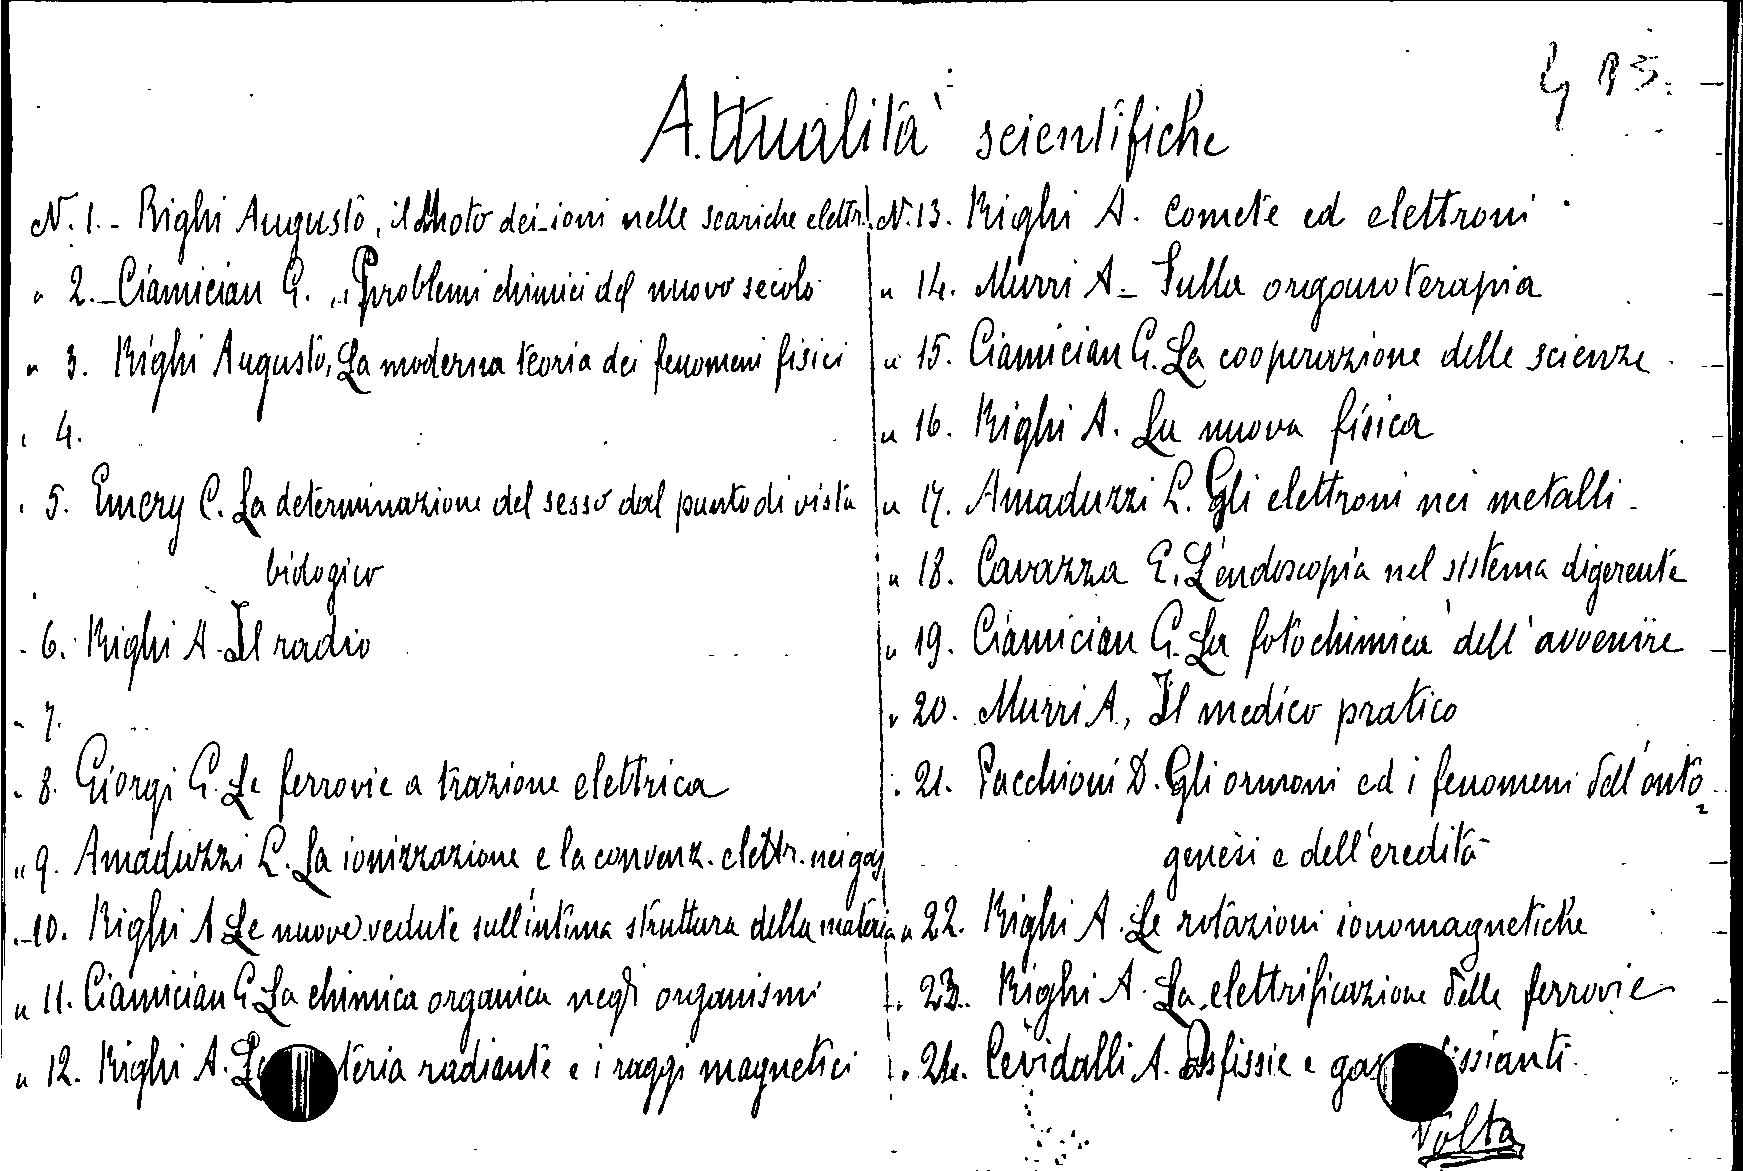 Attualità scientifiche
N. 1. - Righi Augusto, il Moto dei ioni nelle scariche elettr.
" 2. - Ciamician G. Problemi chimici del nuovo secolo
" 3. Righi Augusto, La moderna teoria dei fenomeni fisici
" 4.
" 5. Emery C. La determinazione del sesso dal punto di vista
biologico
" 6. Righi A. Il radio
" 7.
" 8. Giorgi G. Le ferrovie a trazione elettrica
" 9. Amaduzzi L. La ionizzazione e la convenz. elettr. nei gas
" 10. Righi A. Le nuove vedute sull'intima struttura della materia
" 11. Ciamician G. La chimica organica negli organismi
" 12. Righi A. La teria radiante e i raggi magnetici
N. 13. Righi A. Comete ed elettroni
" 14. Murri A - Sulla organoterapia
" 15. Ciamician G. La cooperazione delle scienze
" 16. Righi A. La nuova fisica
" 17. Amaduzzi L. Gli elettroni nei metalli -
" 18. Cavazza E. L'endoscopia nel sistema digerente
" 19. Ciamician G. La fotochimica dell'avvenire
" 20. Murri A, Il medico pratico
" 21. Pacchioni D. Gli ormoni ed i fenomeni dell'onto-
genesi e dell'eredità
" 22. Righi A. Le rotazioni ionomagnetiche
" 23. Righi A. La elettrificazione delle ferrovie
" 24. Cevidalli A. Asfissie e gas issianti.
Volta